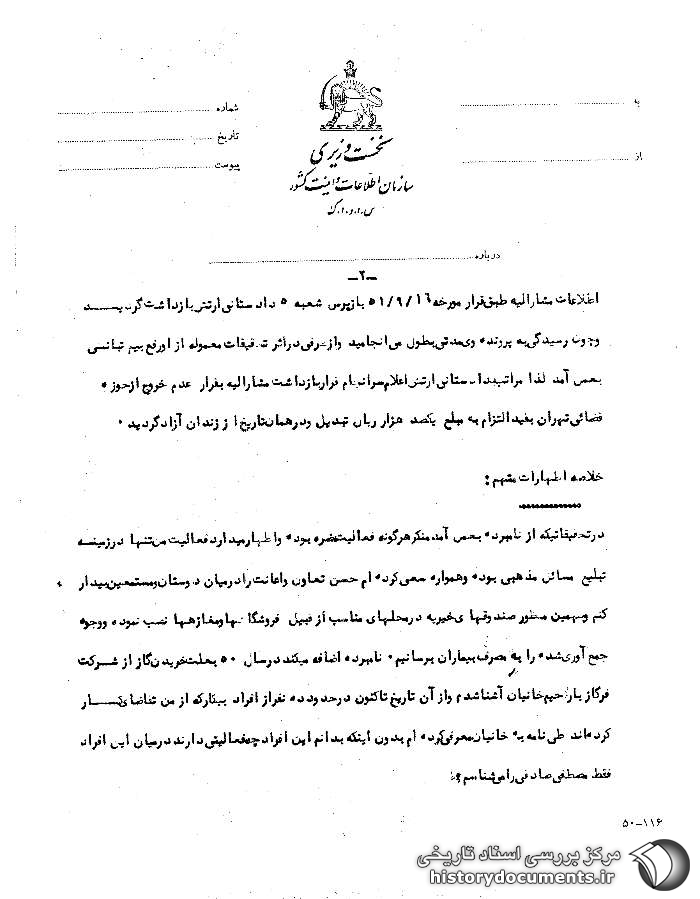 به
شماره
تاریخ
پیوست
از
نخست وزیری
سازمان اطلاعات و امنیت کشور
س.ا.و.ا.ک
درباره
-۲-
اطلاعات مشارالیه طبق قرار مورخه ۵۱/۹/۱۶ بازپرس شعبه ۵ دادستانی ارتش بازداشت گردید
وچون رسیدگی به پرونده وی مدتی بطول می انجامید وازطرفی دراثر تحقیقات معموله از او رفع بیم تبانی
بعمل آمد لذا مراتب به دادستانی ارتش اعلام سرانجام قرار بازداشت مشارالیه بقرار عدم خروج ازحوزه
قضائی تهران بقید التزام به مبلغ یکصد هزار ریال تبدیل ودرهمان تاریخ از زندان آزاد گردید ۰
خلاصه اظهارات متهم :
درتحقیقاتیکه از نامبرده بعمل آمد منکر هرگونه فعالیت مضره بوده واظهار میدارد فعالیت من تنها درزمینه
تبلیغ مسائل مذهبی بوده وهمواره سعی کرده ام حسن تعاون واعانت را درمیان دوستان ومستمعین بیدار
کنم وبهمین منظور صندوقهای خیریه درمحلهای مناسب از قبیل فروشگاهها ومغازه ها نصب نموده ووجوه
جمع آوری شده را به مصرف بیماران برسانیم ۰ نامبرده اضافه میکند درسال ۵۰ بعلت خریدن گاز از شرکت
فرگاز با رحیم خانیان آشنا شدم واز آن تاریخ تاکنون درحدود ده نفر از افراد بیکار که از من تقاضای کار
کرده اند طی نامه به خانیان معرفی کرده ام بدون اینکه بدانم این افراد چه فعالیتی دارند درمیان این افراد
فقط مصطفی صادقی را می شناسم
۵۰-۱۱۶
مرکز بررسی اسناد تاریخی
historydocuments.ir